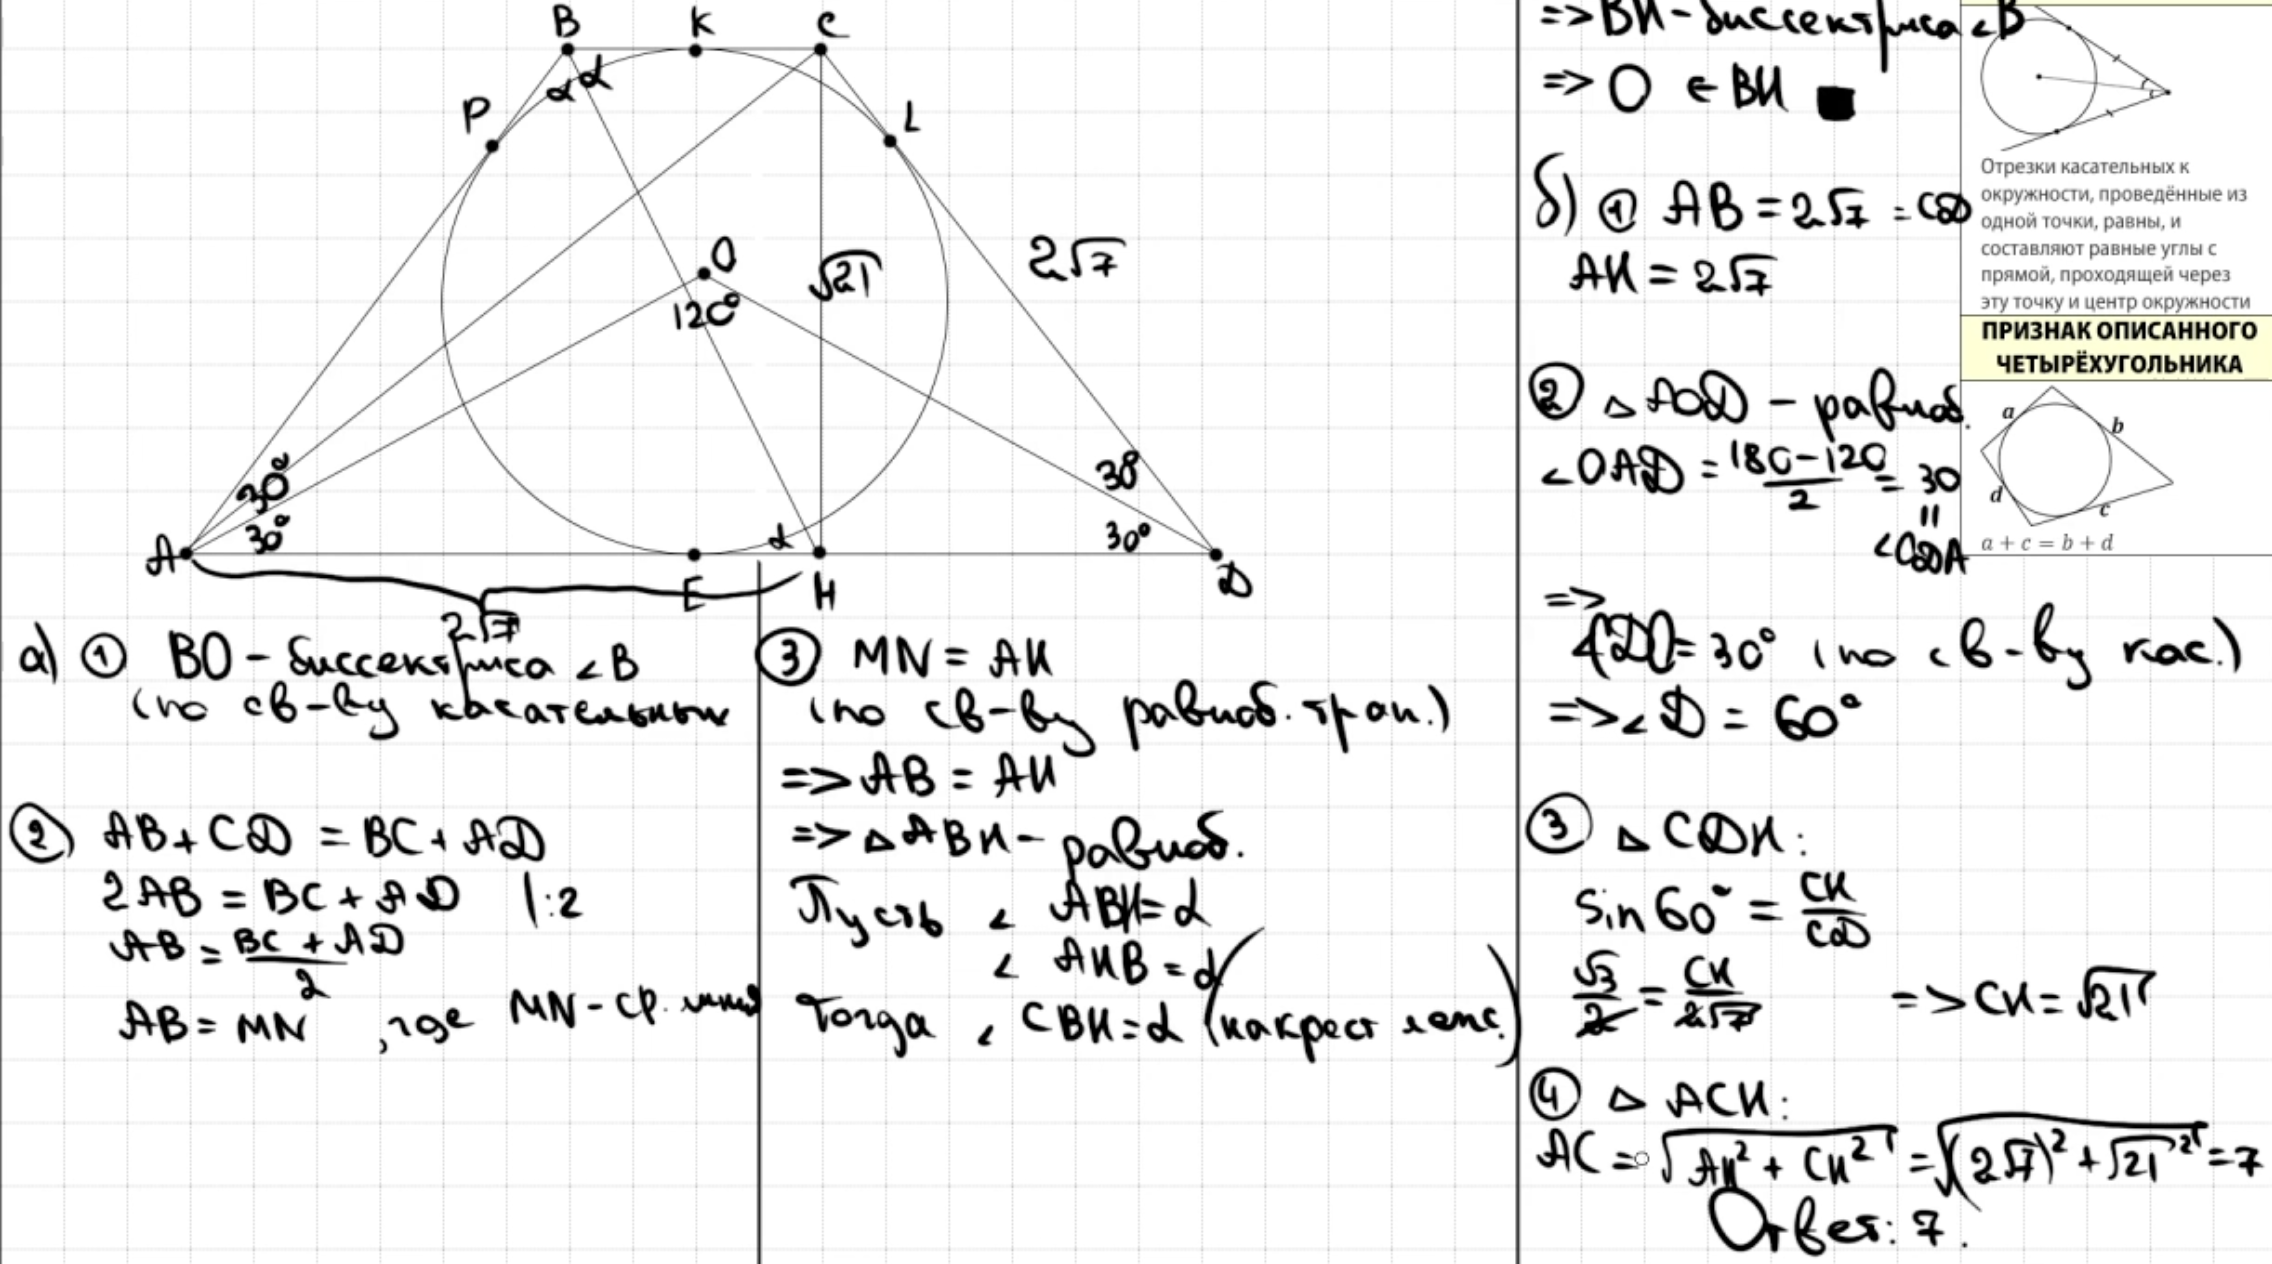 B K C
α α
P
L
O
120°
√21
2√7
30°
30°
30°
30°
α
A
E
H
D
2√7
а) ① BO - биссектриса ∠B
(по св-ву касательных
② AB + CD = BC + AD
2AB = BC + AD |:2
AB = (BC + AD)/2
AB = MN , где MN - ср. линия
③ MN = AH
(по св-ву равноб. трап.)
=> AB = AH
=> △ABH - равноб.
Пусть ∠ABH = α
∠AHB = α
Тогда ∠CBH = α (накрест леж.)
=> BH - биссектриса ∠B
=> O ∈ BH ■
б) ① AB = 2√7 = CD
AH = 2√7
② △AOD - равноб.
∠OAD = (180-120)/2 = 30
=
∠CDA
=>
30° (по св-ву кас.)
=> ∠D = 60°
③ △CDH:
sin 60° = CH/CD
√3/2 = CH/2√7 => CH = √21
④ △ACH:
AC = √(AH² + CH²) = √((2√7)² + √21²) = 7
Ответ: 7.
Отрезки касательных к
окружности, проведённые из
одной точки, равны, и
составляют равные углы с
прямой, проходящей через
эту точку и центр окружности
ПРИЗНАК ОПИСАННОГО
ЧЕТЫРЁХУГОЛЬНИКА
a
b
d
c
a + c = b + d